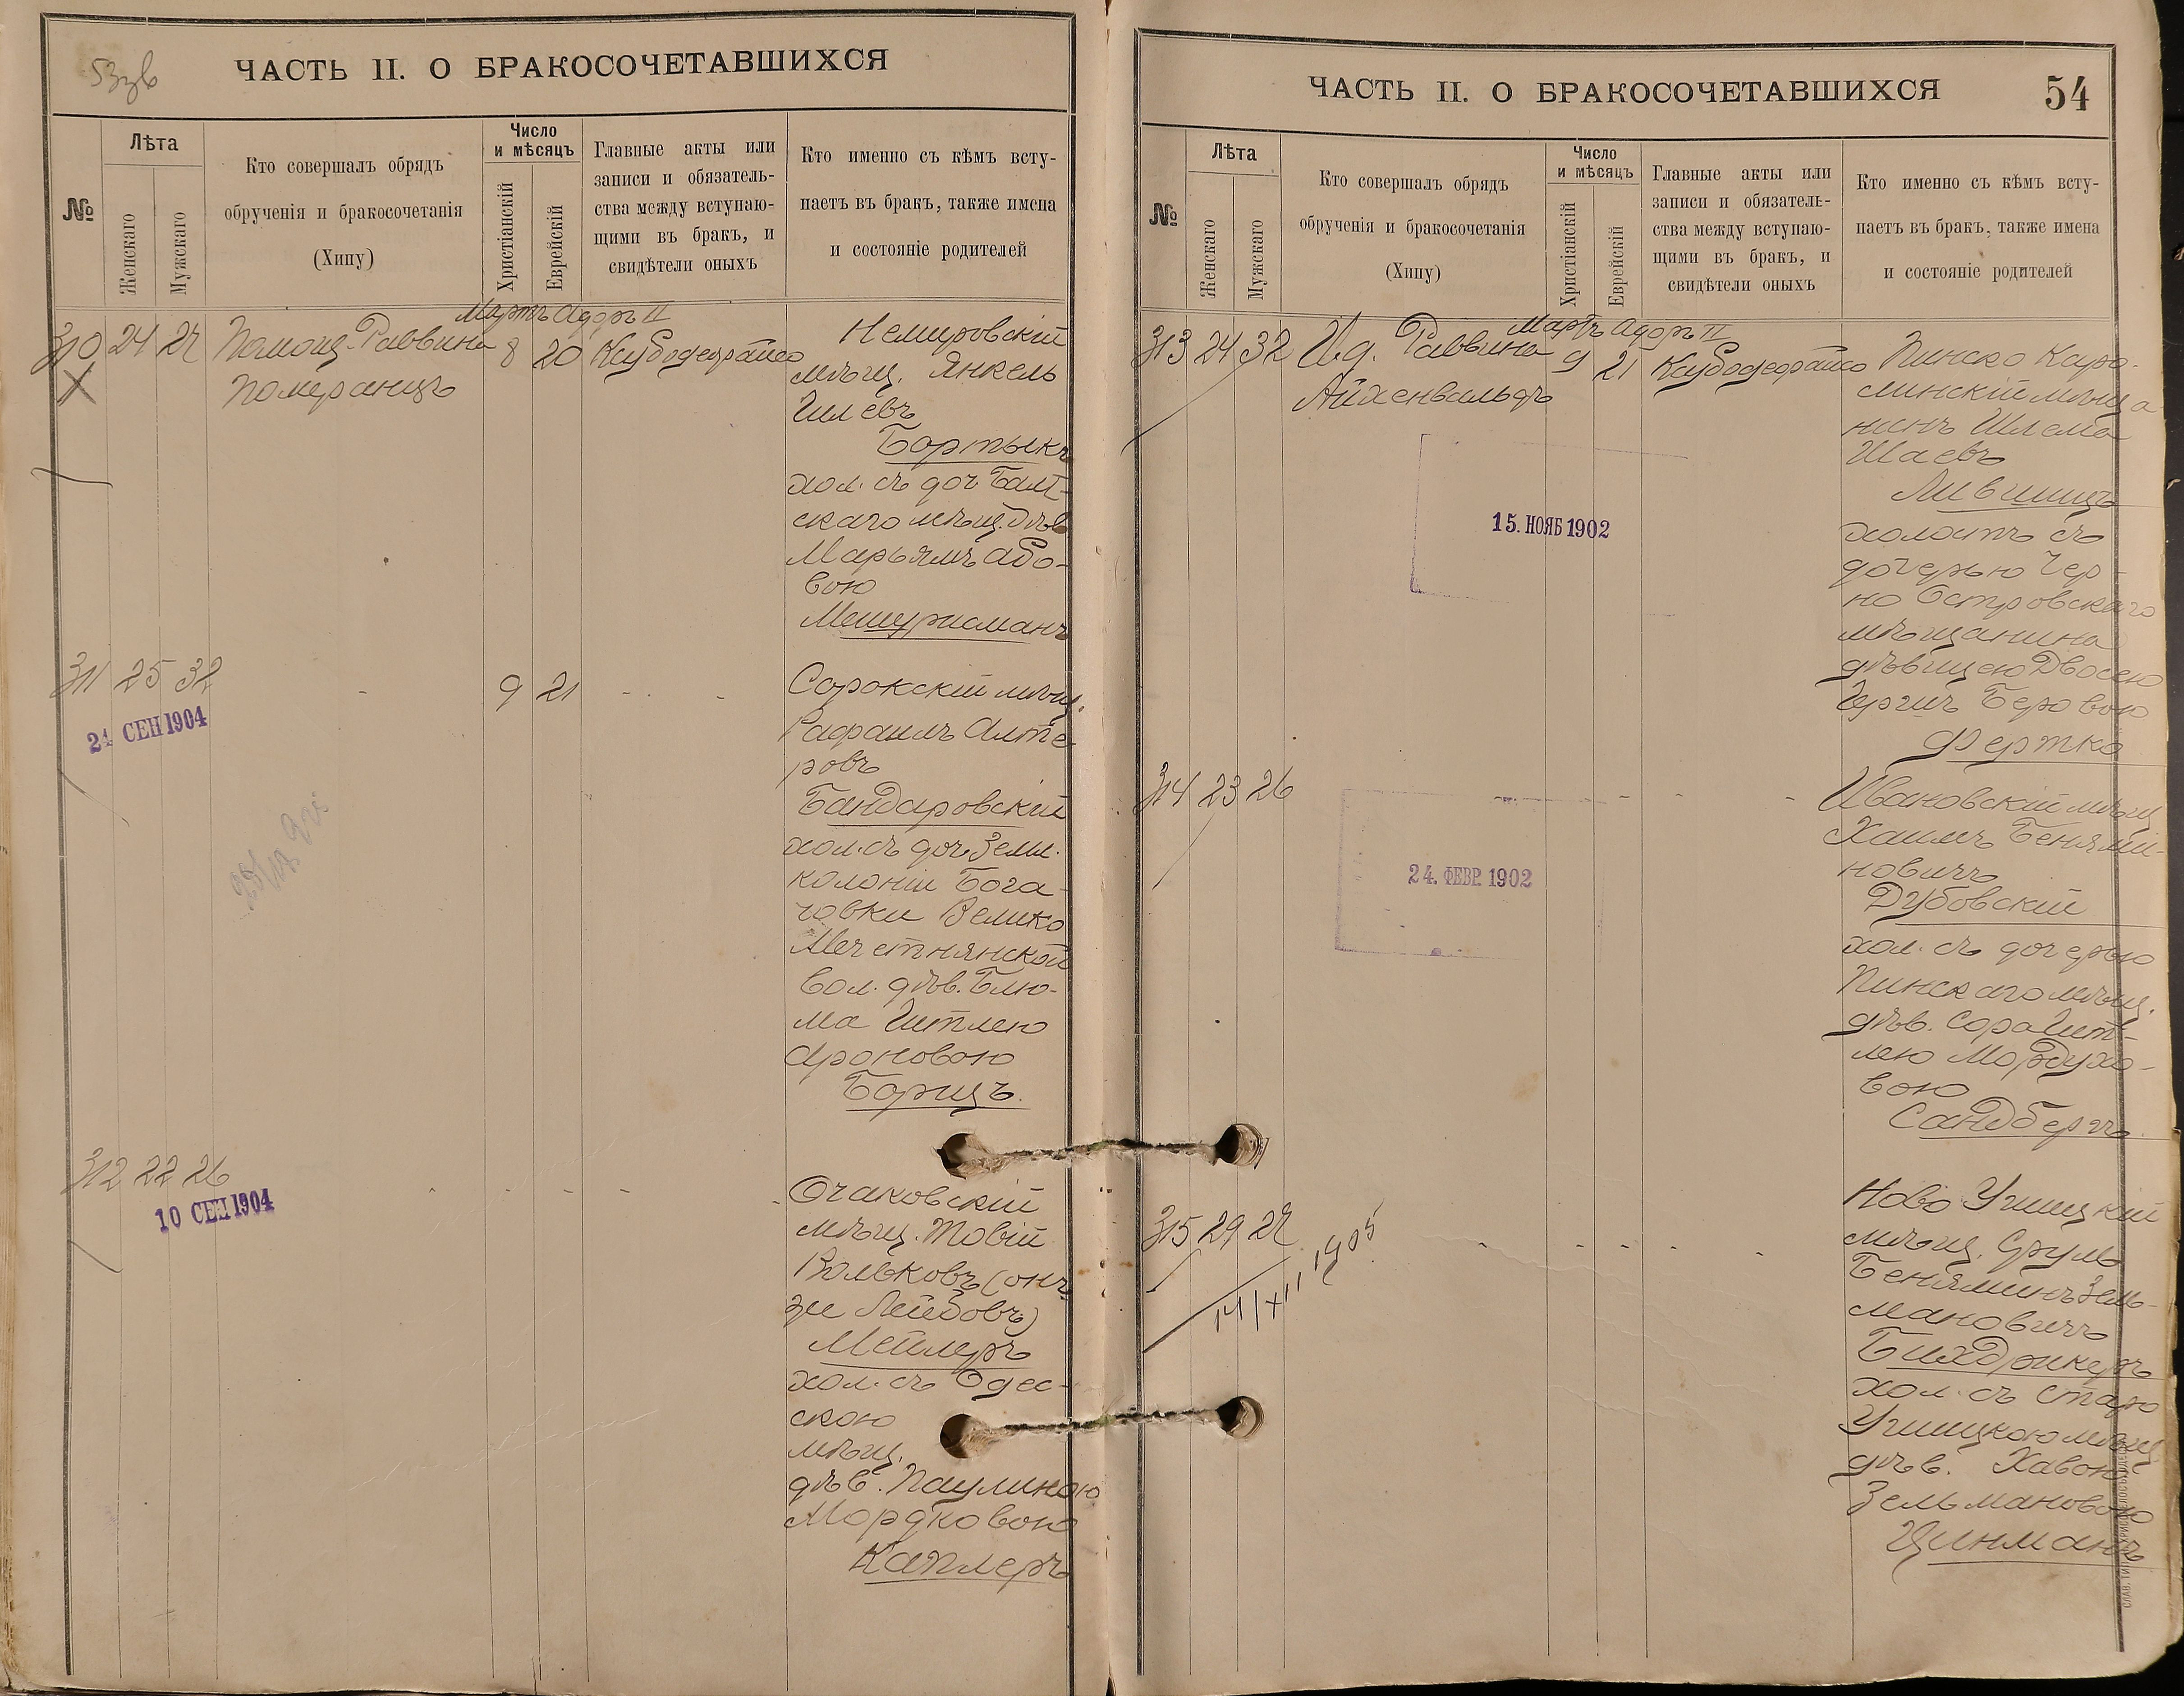 53зв
ЧАСТЬ II. О БРАКОСОЧЕТАВШИХСЯ
№
Лѣта
Женскаго
Мужскаго
Кто совершалъ обрядъ
обрученія и бракосочетанія
(Хипу)
Число
и мѣсяцъ
Христіанскій
Еврейскій
Главные акты или
записи и обязатель-
ства между вступаю-
щими въ бракъ, и
свидѣтели оныхъ
Кто именно съ кѣмъ всту-
паетъ въ бракъ, также имена
и состояніе родителей
Мартъ Адоръ II
310 24 27 Помощ. Раввина 8 20
Померанцъ
Немировскій
мѣщ. Янкель
Бортыкъ
хол. съ доч. Балт-
скаго мѣщ. дѣв
Марьямъ Або-
вою
Мешурисманъ
311 25 32 - 9 21 - -
24 СЕН 1904
Сорокскій мѣщ.
Рафаилъ Алте-
ровъ
Бандаровскій
хол. съ доч. Земл.
колоніи Бога-
човки Велико
Мечетнянской
вол. дѣв. Блю-
ма Гитлею
Ароновою
Борищъ.
312 22 26 - - - - -
10 СЕН 1904
Очаковскій
мѣщ. Товій
Вольковъ (онъ
же Лейбовъ)
Мейлеръ
хол. съ Одес-
скою
мѣщ.
дѣв. Паулиною
Мордковою
Каплеръ
ЧАСТЬ II. О БРАКОСОЧЕТАВШИХСЯ
54
№
Лѣта
Женскаго
Мужскаго
Кто совершалъ обрядъ
обрученія и бракосочетанія
(Хипу)
Число
и мѣсяцъ
Христіанскій
Еврейскій
Главные акты или
записи и обязатель-
ства между вступаю-
щими въ бракъ, и
свидѣтели оныхъ
Кто именно съ кѣмъ всту-
паетъ въ бракъ, также имена
и состояніе родителей
Мартъ Адоръ II
313 24 32 И.д. Раввина 9 21
Айхенвальдъ
15. НОЯБ 1902
Пинско Каро-
линскій мѣща
нинъ Шлема
Шаевъ
Лившицъ
холостъ съ
дочерью Чер-
но Островскаго
мѣщанина
дѣвицею Двосею
Беровою
Фертко
314 23 26 - - - -
24. ФЕВР. 1902
Ивановскій мѣщ
Хаимъ Беньями-
новичъ
Дубовскій
хол. съ дочерью
Пинскаго мѣщ.
дѣв. Сора Гит-
лею Мордухо-
вою
Сандбергъ
315 29 27 - - - - -
14/XII 1905
Ново Ушицкій
мѣщ. Сруль
Беняминъ Зель-
мановичъ
Бихдрикеръ
хол. съ Старо
Ушицкою мѣщ
дѣв. Хавою
Зельмановою
Цинманъ